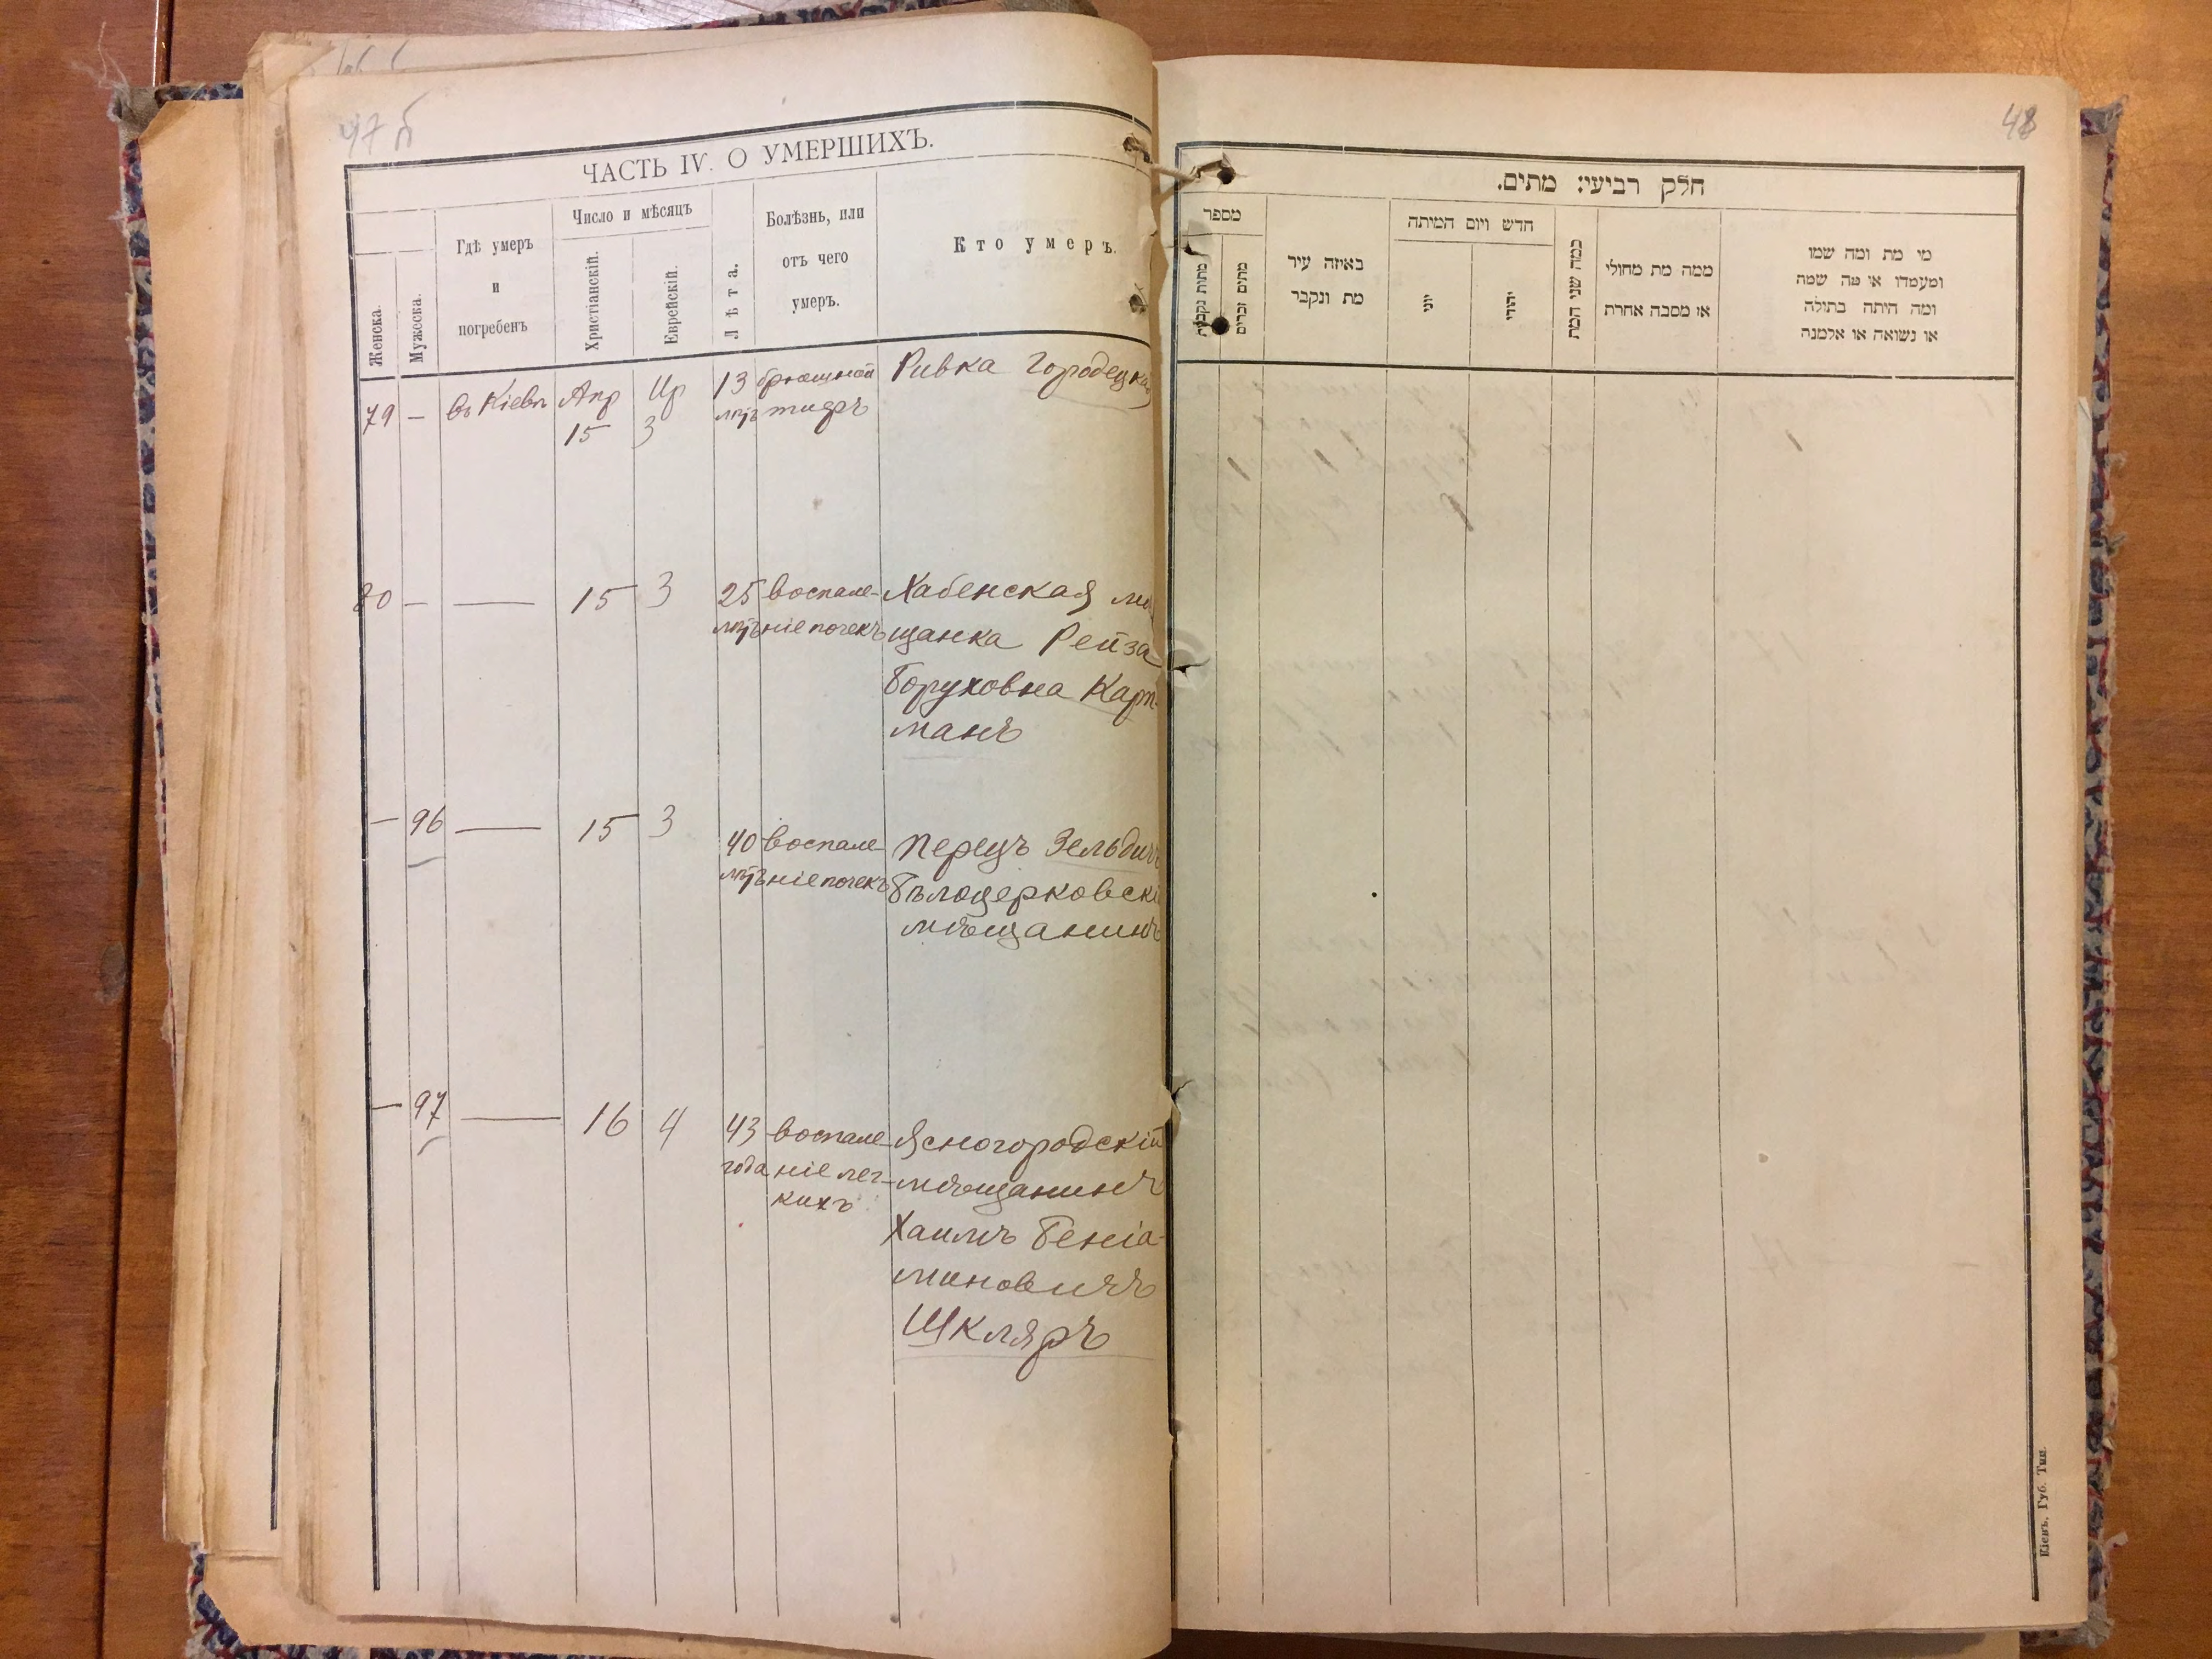 47 б
ЧАСТЬ IV. О УМЕРШИХЪ.
Женска.
Мужеска.
Гдѣ умеръ
и
погребенъ
Число и мѣсяцъ
Христіанскій.
Еврейскій.
Лѣта.
Болѣзнь, или
отъ чего
умеръ.
Кто умеръ.
79 — въ Кіевѣ Апр Ир 13 брюшной Ривка Городецкая
15 3 лѣтъ тифъ
80 — — 15 3 25 воспале- Хабенская мѣ
лѣтъ ніе почекъ щанка Рейза
Боруховна Карт-
манъ
— 96 — 15 3 40 воспале- Перецъ Зельдичъ
лѣтъ ніе почекъ Бѣлоцерковскі
мѣщанинъ
— 97 — 16 4 43 воспале- Ясногородскій
года ніе лег- мѣщанинъ
кихъ Хаимъ Беніа-
миновичъ
Шкляръ
48
חלק רביעי: מתים.
מספר
מתות נקבות
מתים זכרים
באיזה עיר
מת ונקבר
חדש ויום המיתה
יוני
יהודי
כמה שני המת
ממה מת מחולי
או מסבה אחרת
מי מת ומה שמו
ומעמדו או מה שמה
ומה היתה בתולה
או נשואה או אלמנה
Кіевъ, Губ. Тип.